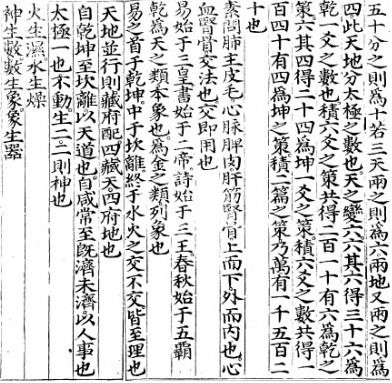 五十分之則爲十若三天兩之則爲六兩地又兩之則爲
四此天地分太極之數也天之變六六其六得三十六爲
乾一爻之數也積六爻之策共得二百一十有六爲乾之
策六其四得二十四爲坤一爻之策積六爻之數共得一
百四十有四爲坤之策積二篇之策乃萬有一千五百二
十也
素問肺主皮毛心脉脾肉肝筋腎骨上而下外而內也心
血腎骨交法也交即用也
易始于三皇書始于二帝詩始于三王春秋始于五霸
乾爲天之類本象也爲金之類列象也
易之首于乾坤中于坎離終于水火之交不交皆至理也
天地並行則藏府配四藏天四府地也
自乾坤至坎離以天道也自咸常至旣濟未濟以人事也
太極一也不動生二二則神也
火生濕水生燥
神生數數生象象生器